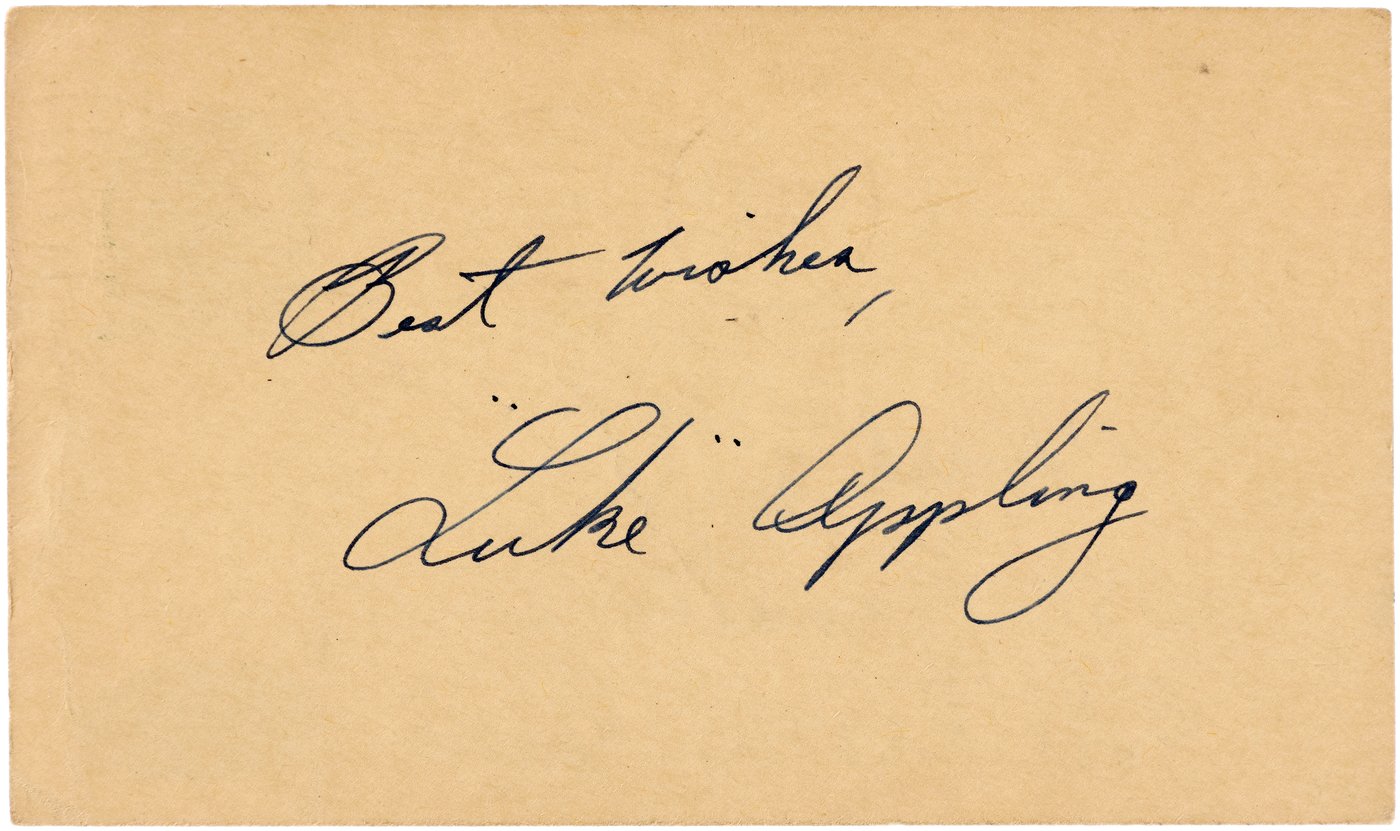 Best Wishes,
"Luke" Appling